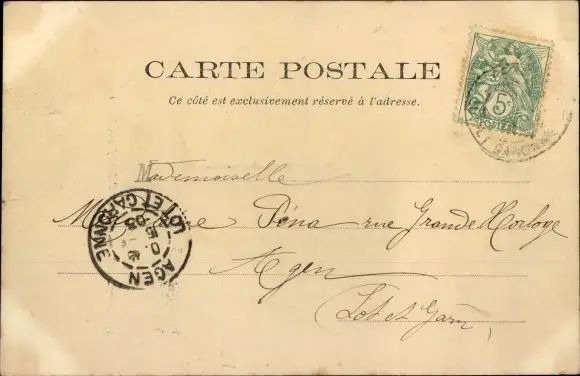 CARTE POSTALE
Ce côté est exclusivement réservé à l'adresse.
5c
POSTES
GARONNE
Mademoiselle
Péna rue Grande Horloge
Agen
Lot et Garne
AGEN
LOT-ET-GARONNE
15
03